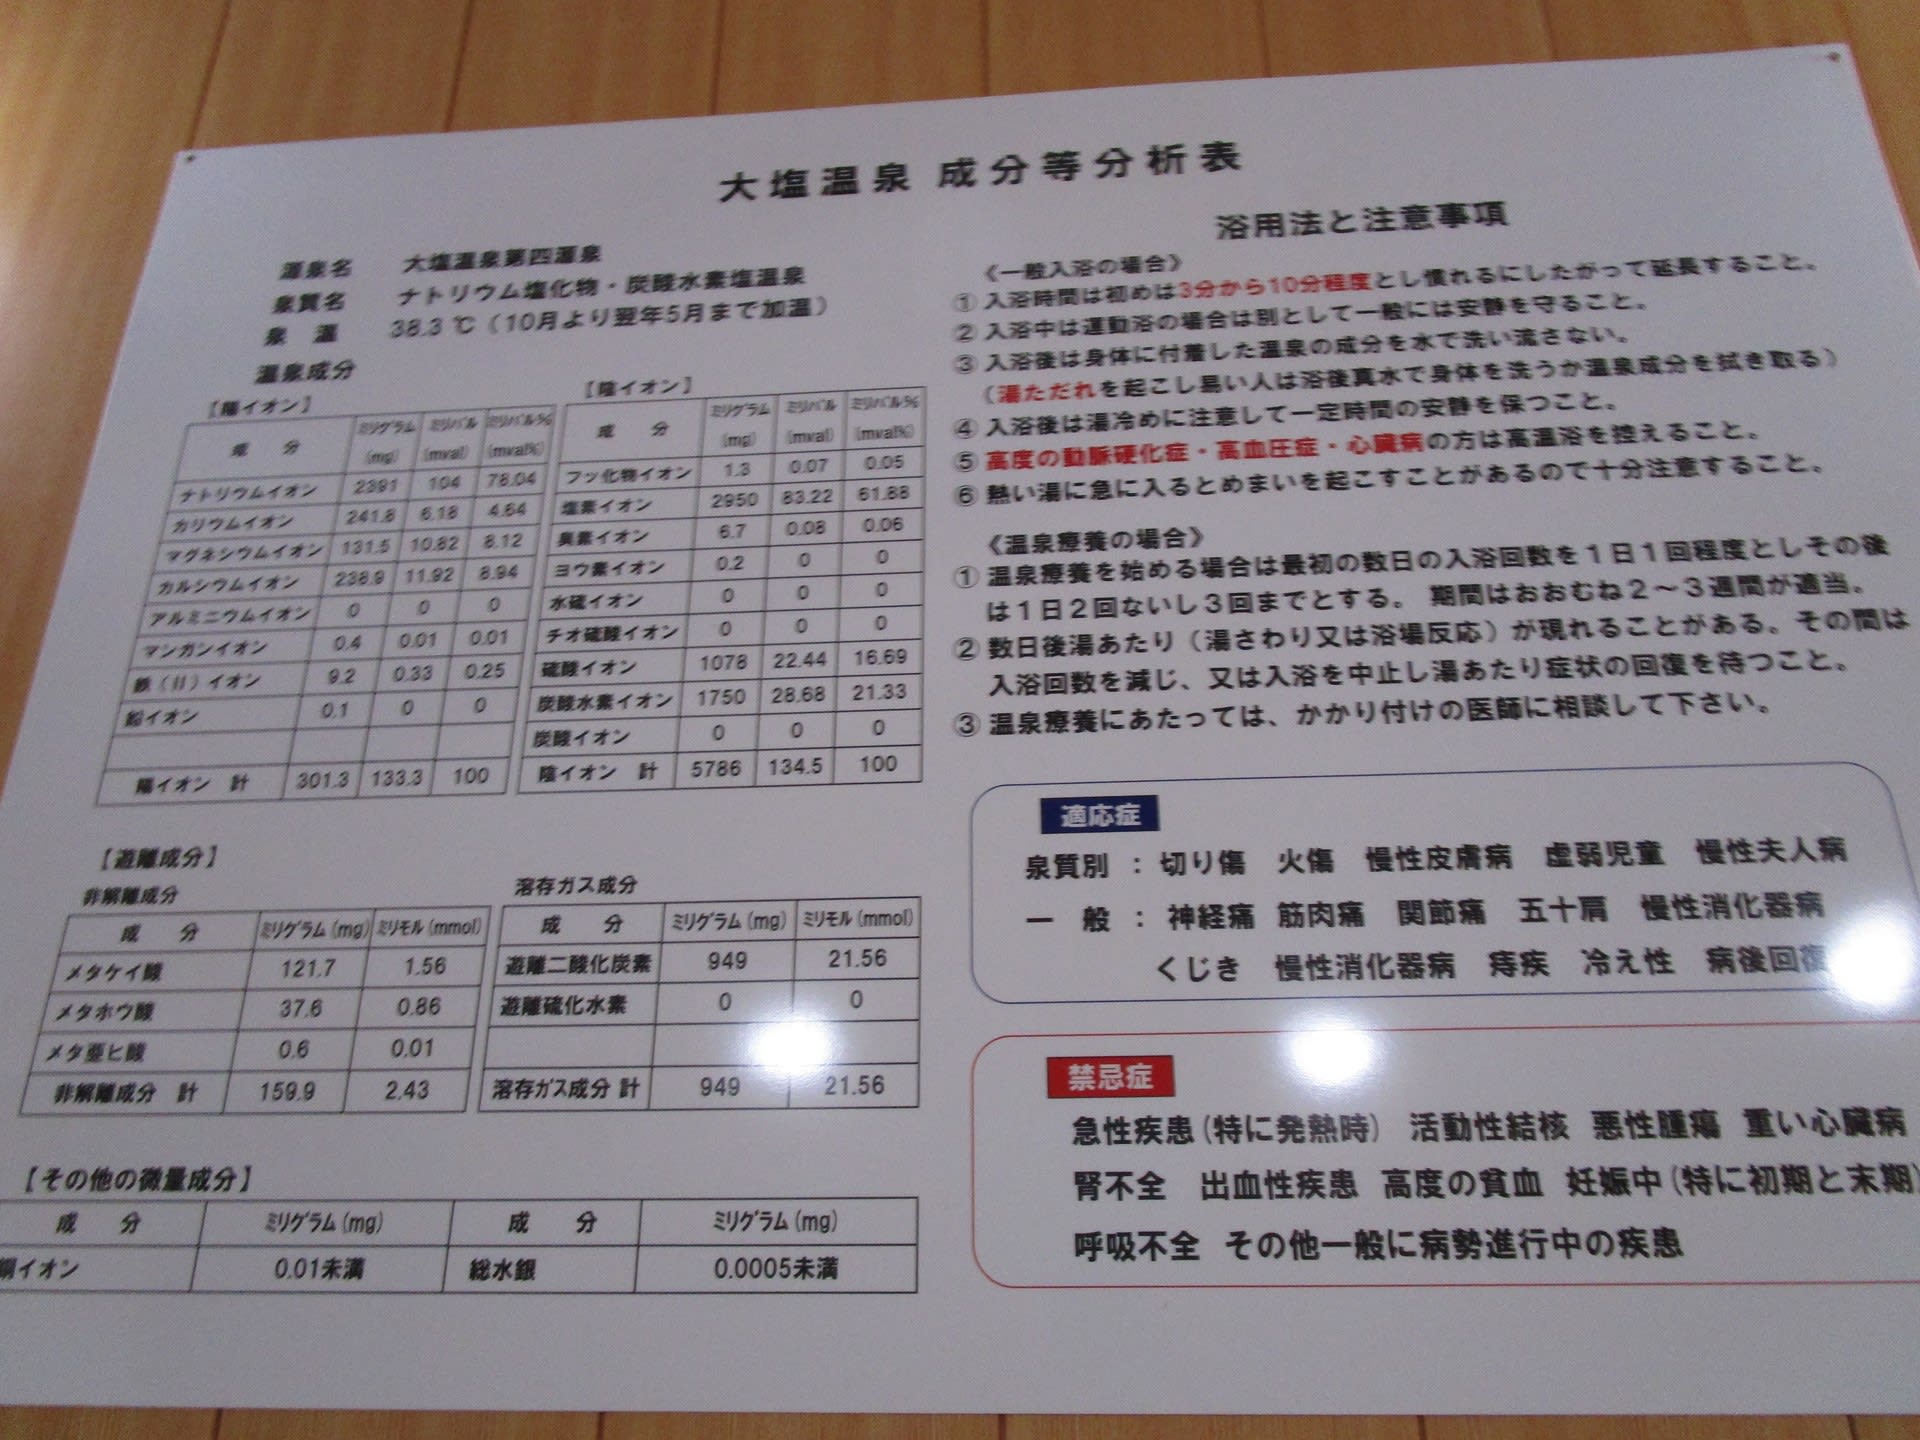 大塩温泉 成分等分析表
源泉名 大塩温泉第四源泉
泉質名 ナトリウム塩化物・炭酸水素塩温泉
泉 温 38.3 ℃（10月より翌年5月まで加温）
温泉成分
【陽イオン】
成 分 ミリグラム(mg) ミリバル(mval) ミリバル%(mval%)
ナトリウムイオン 2391 104 78.04
カリウムイオン 241.8 6.18 4.64
マグネシウムイオン 131.5 10.82 8.12
カルシウムイオン 238.9 11.92 8.94
アルミニウムイオン 0 0 0
マンガンイオン 0.4 0.01 0.01
鉄（II）イオン 9.2 0.33 0.25
鉛イオン 0.1 0 0
陽イオン 計 301.3 133.3 100
【陰イオン】
成 分 ミリグラム(mg) ミリバル(mval) ミリバル%(mval%)
フッ化物イオン 1.3 0.07 0.05
塩素イオン 2950 83.22 61.88
臭素イオン 6.7 0.08 0.06
ヨウ素イオン 0.2 0 0
水硫イオン 0 0 0
チオ硫酸イオン 0 0 0
硫酸イオン 1078 22.44 16.69
炭酸水素イオン 1750 28.68 21.33
炭酸イオン 0 0 0
陰イオン 計 5786 134.5 100
【遊離成分】
非解離成分
成 分 ミリグラム(mg) ミリモル(mmol)
メタケイ酸 121.7 1.56
メタホウ酸 37.6 0.86
メタ亜ヒ酸 0.6 0.01
非解離成分 計 159.9 2.43
溶存ガス成分
成 分 ミリグラム(mg) ミリモル(mmol)
遊離二酸化炭素 949 21.56
遊離硫化水素 0 0
溶存ガス成分 計 949 21.56
【その他の微量成分】
成 分 ミリグラム(mg) 成 分 ミリグラム(mg)
銅イオン 0.01未満 総水銀 0.0005未満
浴用法と注意事項
《一般入浴の場合》
① 入浴時間は初めは3分から10分程度とし慣れるにしたがって延長すること。
② 入浴中は運動浴の場合は別として一般には安静を守ること。
③ 入浴後は身体に付着した温泉の成分を水で洗い流さない。
（湯ただれを起こし易い人は浴後真水で身体を洗うか温泉成分を拭き取る）
④ 入浴後は湯冷めに注意して一定時間の安静を保つこと。
⑤ 高度の動脈硬化症・高血圧症・心臓病の方は高温浴を控えること。
⑥ 熱い湯に急に入るとめまいを起こすことがあるので十分注意すること。
《温泉療養の場合》
① 温泉療養を始める場合は最初の数日の入浴回数を１日１回程度としその後
は１日２回ないし３回までとする。 期間はおおむね２～３週間が適当。
② 数日後湯あたり（湯さわり又は浴場反応）が現れることがある。その間は
入浴回数を減じ、又は入浴を中止し湯あたり症状の回復を待つこと。
③ 温泉療養にあたっては、かかり付けの医師に相談して下さい。
適応症
泉質別 ： 切り傷 火傷 慢性皮膚病 虚弱児童 慢性夫人病
一 般 ： 神経痛 筋肉痛 関節痛 五十肩 慢性消化器病
くじき 慢性消化器病 痔疾 冷え性 病後回復
禁忌症
急性疾患(特に発熱時) 活動性結核 悪性腫瘍 重い心臓病
腎不全 出血性疾患 高度の貧血 妊娠中(特に初期と末期)
呼吸不全 その他一般に病勢進行中の疾患